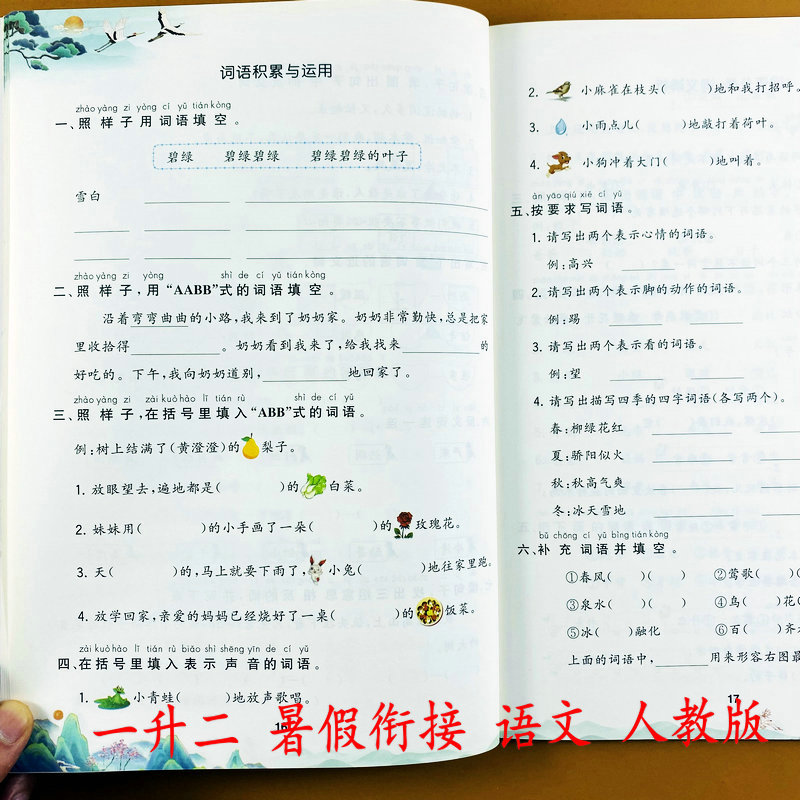 词语积累与运用
zhào yàng zi yòng cí yǔ tián kòng
一、照样子用词语填空。
碧绿 碧绿碧绿 碧绿碧绿的叶子
雪白
zhào yàng zi yòng shì de cí yǔ tián kòng
二、照样子,用“AABB”式的词语填空。
沿着弯弯曲曲的小路,我来到了奶奶家。奶奶非常勤快,总是把家
里收拾得________。奶奶看到我来了,给我找来________的
好吃的。下午,我向奶奶道别,________地回家了。
zhào yàng zi zài kuò hào lǐ tián rù shì de cí yǔ
三、照样子,在括号里填入“ABB”式的词语。
例:树上结满了(黄澄澄)的梨子。
1. 放眼望去,遍地都是( )的白菜。
2. 妹妹用( )的小手画了一朵( )的玫瑰花。
3. 天( )的,马上就要下雨了,小兔( )地往家里跑。
4. 放学回家,亲爱的妈妈已经烧好了一桌( )的饭菜。
zài kuò hào lǐ tián rù biǎo shì shēng yīn de cí yǔ
四、在括号里填入表示声音的词语。
1. 小青蛙( )地放声歌唱。
16
2. 小麻雀在枝头( )地和我打招呼。
3. 小雨点儿( )地敲打着荷叶。
4. 小狗冲着大门( )地叫着。
àn yāo qiú xiě cí yǔ
五、按要求写词语。
1. 请写出两个表示心情的词语。
例:高兴
2. 请写出两个表示脚的动作的词语。
例:踢
3. 请写出两个表示看的词语。
例:望
4. 请写出描写四季的四字词语(各写两个)。
春:柳绿花红
夏:骄阳似火
秋:秋高气爽
冬:冰天雪地
bǔ chōng cí yǔ bìng tián kòng
六、补充词语并填空。
①春风( )( ) ②莺歌( )(
③泉水( )( ) ④鸟( )花(
⑤冰( )融化 ⑥百( )齐
上面的词语中,________用来形容右图最
17
一升二 暑假衔接 语文 人教版